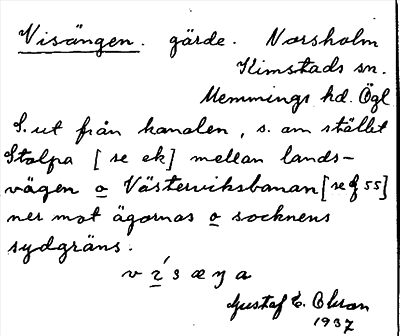 Visängen. gärde. Norsholm
Kimstads sn.
Memmings hd. Ögl
S. ut från kanalen, s. om stället
Stolpa [se ek] mellan lands-
vägen o Västerviksbanan [se f 55]
ner mot ägornas o socknens
sydgräns.
v í s æ ŋ a
Gustaf E. Olson
1937